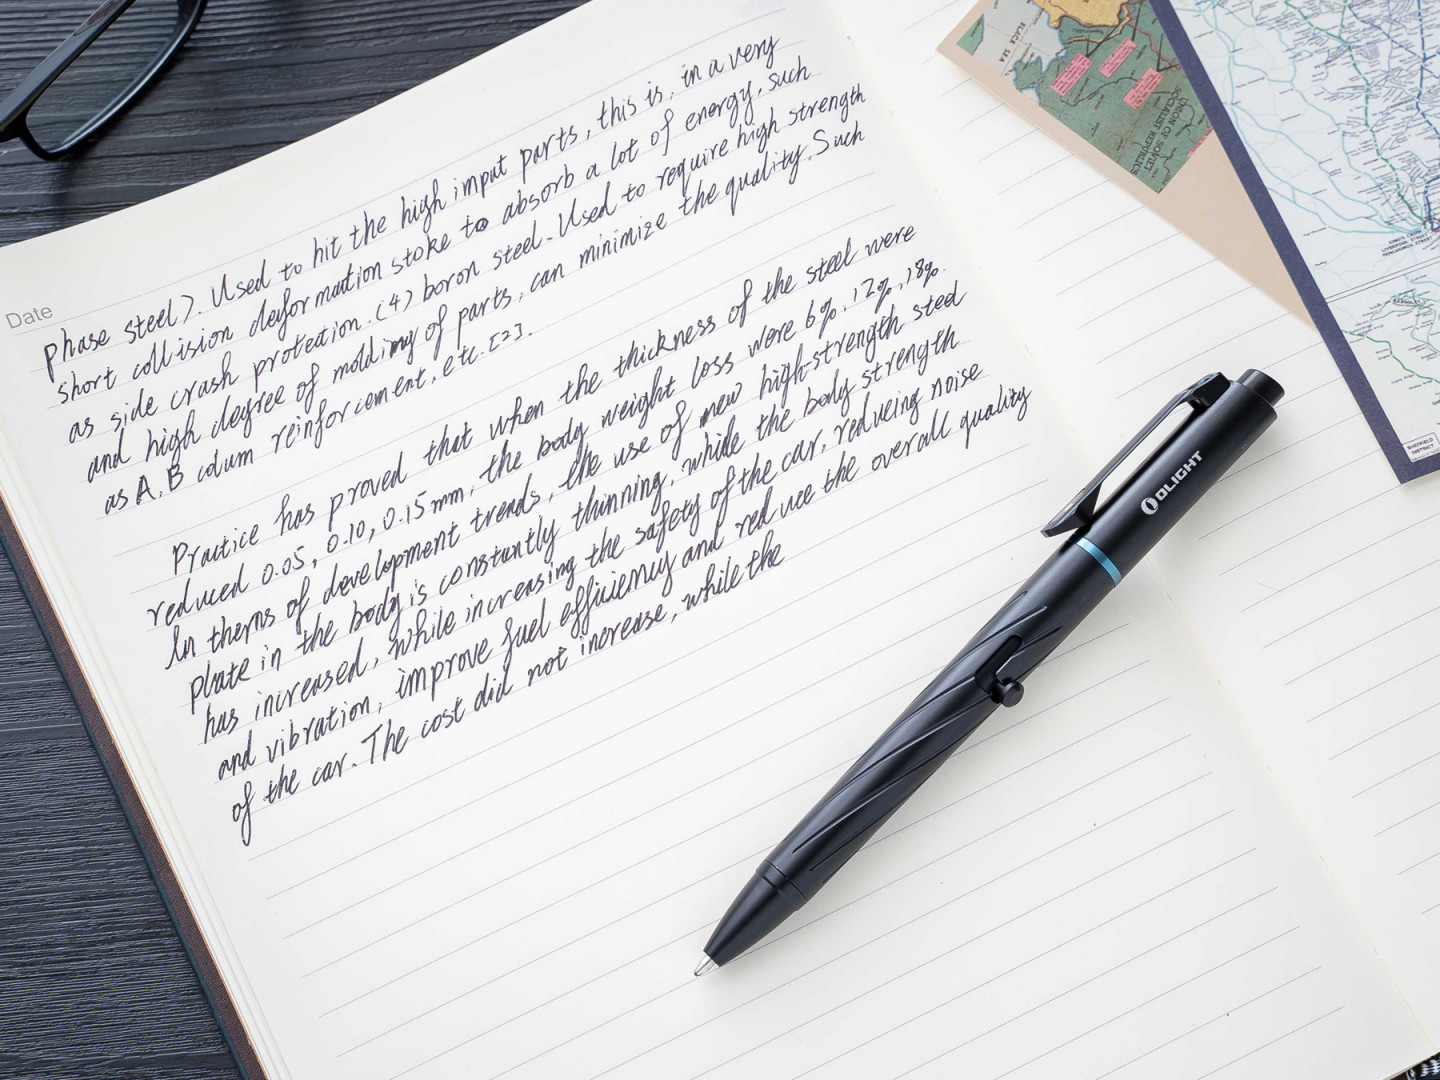 Date
phase steel). Used to hit the high input parts, this is, in a very
short collision deyformaution stoke to absorb a lot of energy, such
as side crash protection. (4) boron steel. Used to require high strength
and high degree of molding of parts, can minimize the quality. Such
as A, B colum reinforcement, etc. [2].
Practice has proved that when the thickness of the steel were
reduced 0.05, 0.10, 0.15mm, the body weight loss were 6%, 12%, 18%.
In therns of development trends, the use of new high-strength steel
plate in the body is constantly thinning, while the body strength
has increased, while increasing the safety of the car, reducing noise
and vibration, improve fuel efficiency and reduce the overall quality
of the car. The cost did not increase, while the
OLIGHT
BLACK SEA
UNION OF SOVIET
SOCIALIST REPUBLICS